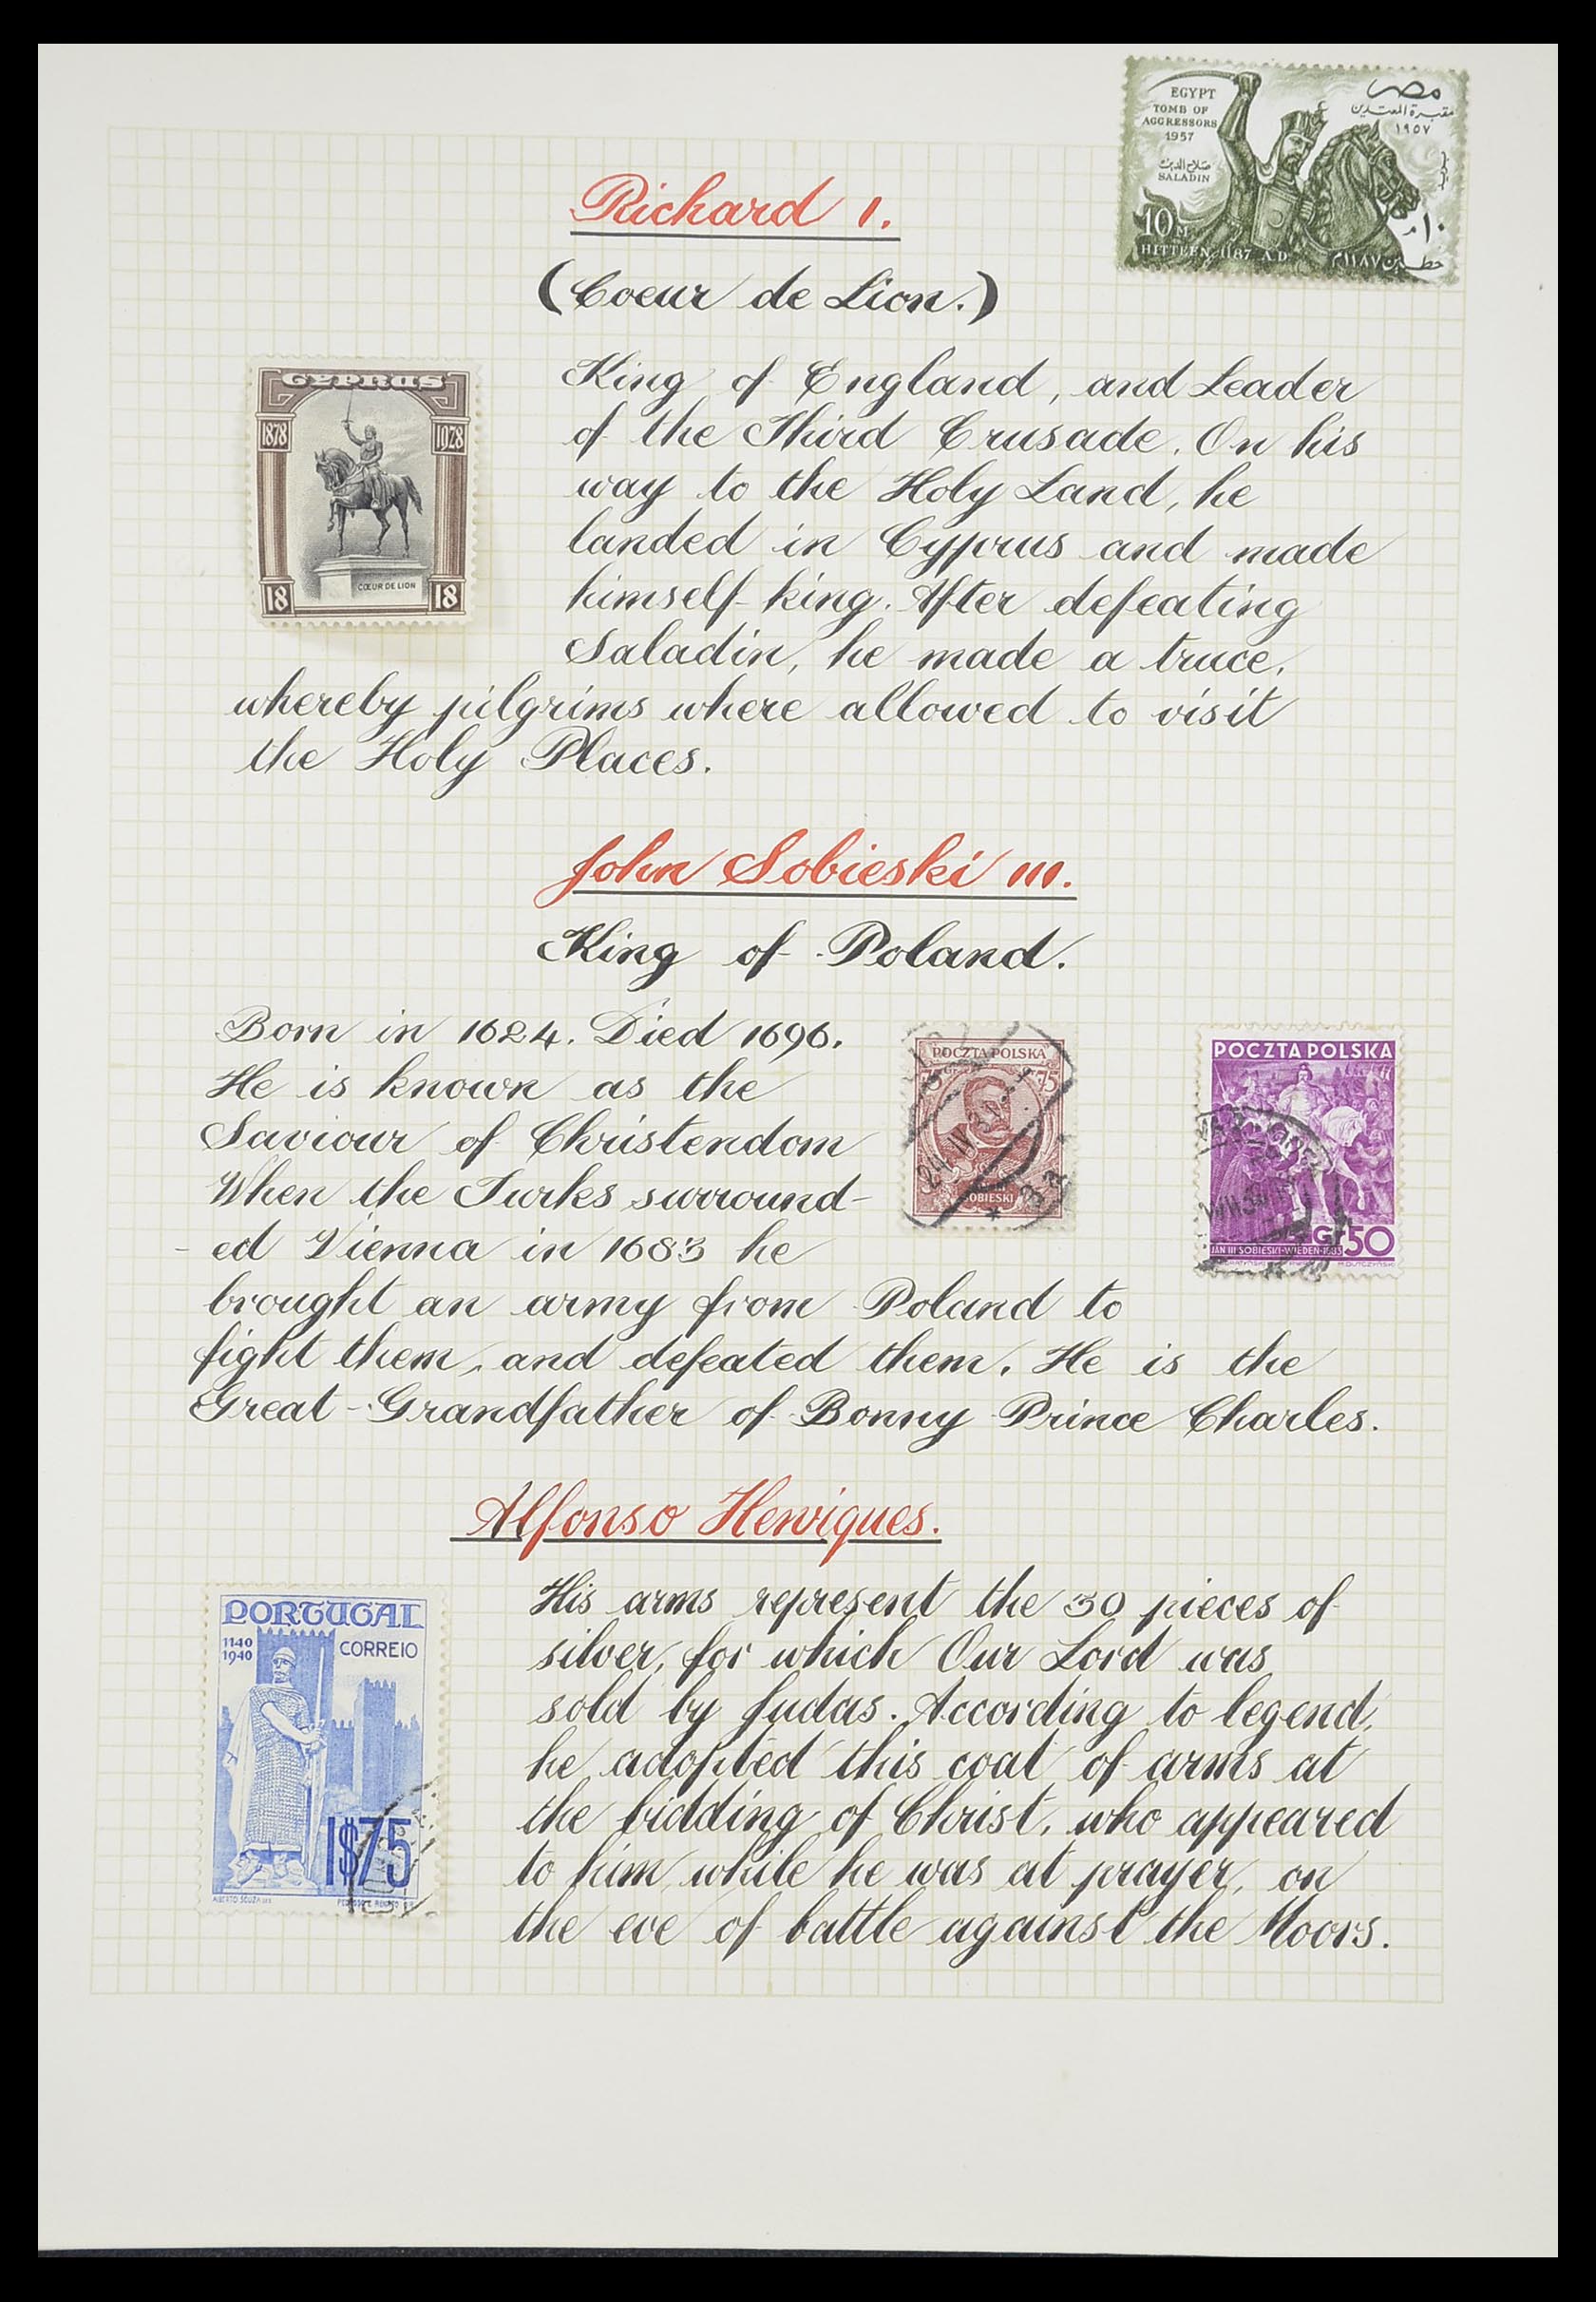 EGYPT
TOMB OF
AGGRESSORS
1957
مصر
مقبرة المعتدين
١٩٥٧
صلاح الدين
SALADIN
10 M.
١٠ م
HITTEEN, 1187 A.D
حطين ١١٨٧م
Richard I.
(Coeur de Lion.)
CYPRUS
1878 1928
CŒUR DE LION
18 18
King of England, and Leader
of the Third Crusade. On his
way to the Holy Land, he
landed in Cyprus and made
himself king. After defeating
Saladin, he made a truce,
whereby pilgrims where allowed to visit
the Holy Places.
John Sobieski III.
King of Poland.
Born in 1624. Died 1696.
He is known as the
Saviour of Christendom
When the Turks surround-
- ed Vienna in 1683 he
brought an army from Poland to
fight them, and defeated them. He is the
Great-Grandfather of Bonny Prince Charles.
POCZTA POLSKA
75
24 IV
SOBIESKI
POCZTA POLSKA
GR 50
JAN III SOBIESKI-WIEDEN-1683
Alfonso Henriques.
PORTUGAL
1140
1940
CORREIO
1$75
ALBERTO SOUZA
His arms represent the 30 pieces of
silver, for which Our Lord was
sold by Judas. According to legend,
he adopted this coat of arms at
the bidding of Christ, who appeared
to him while he was at prayer, on
the eve of battle against the Moors.